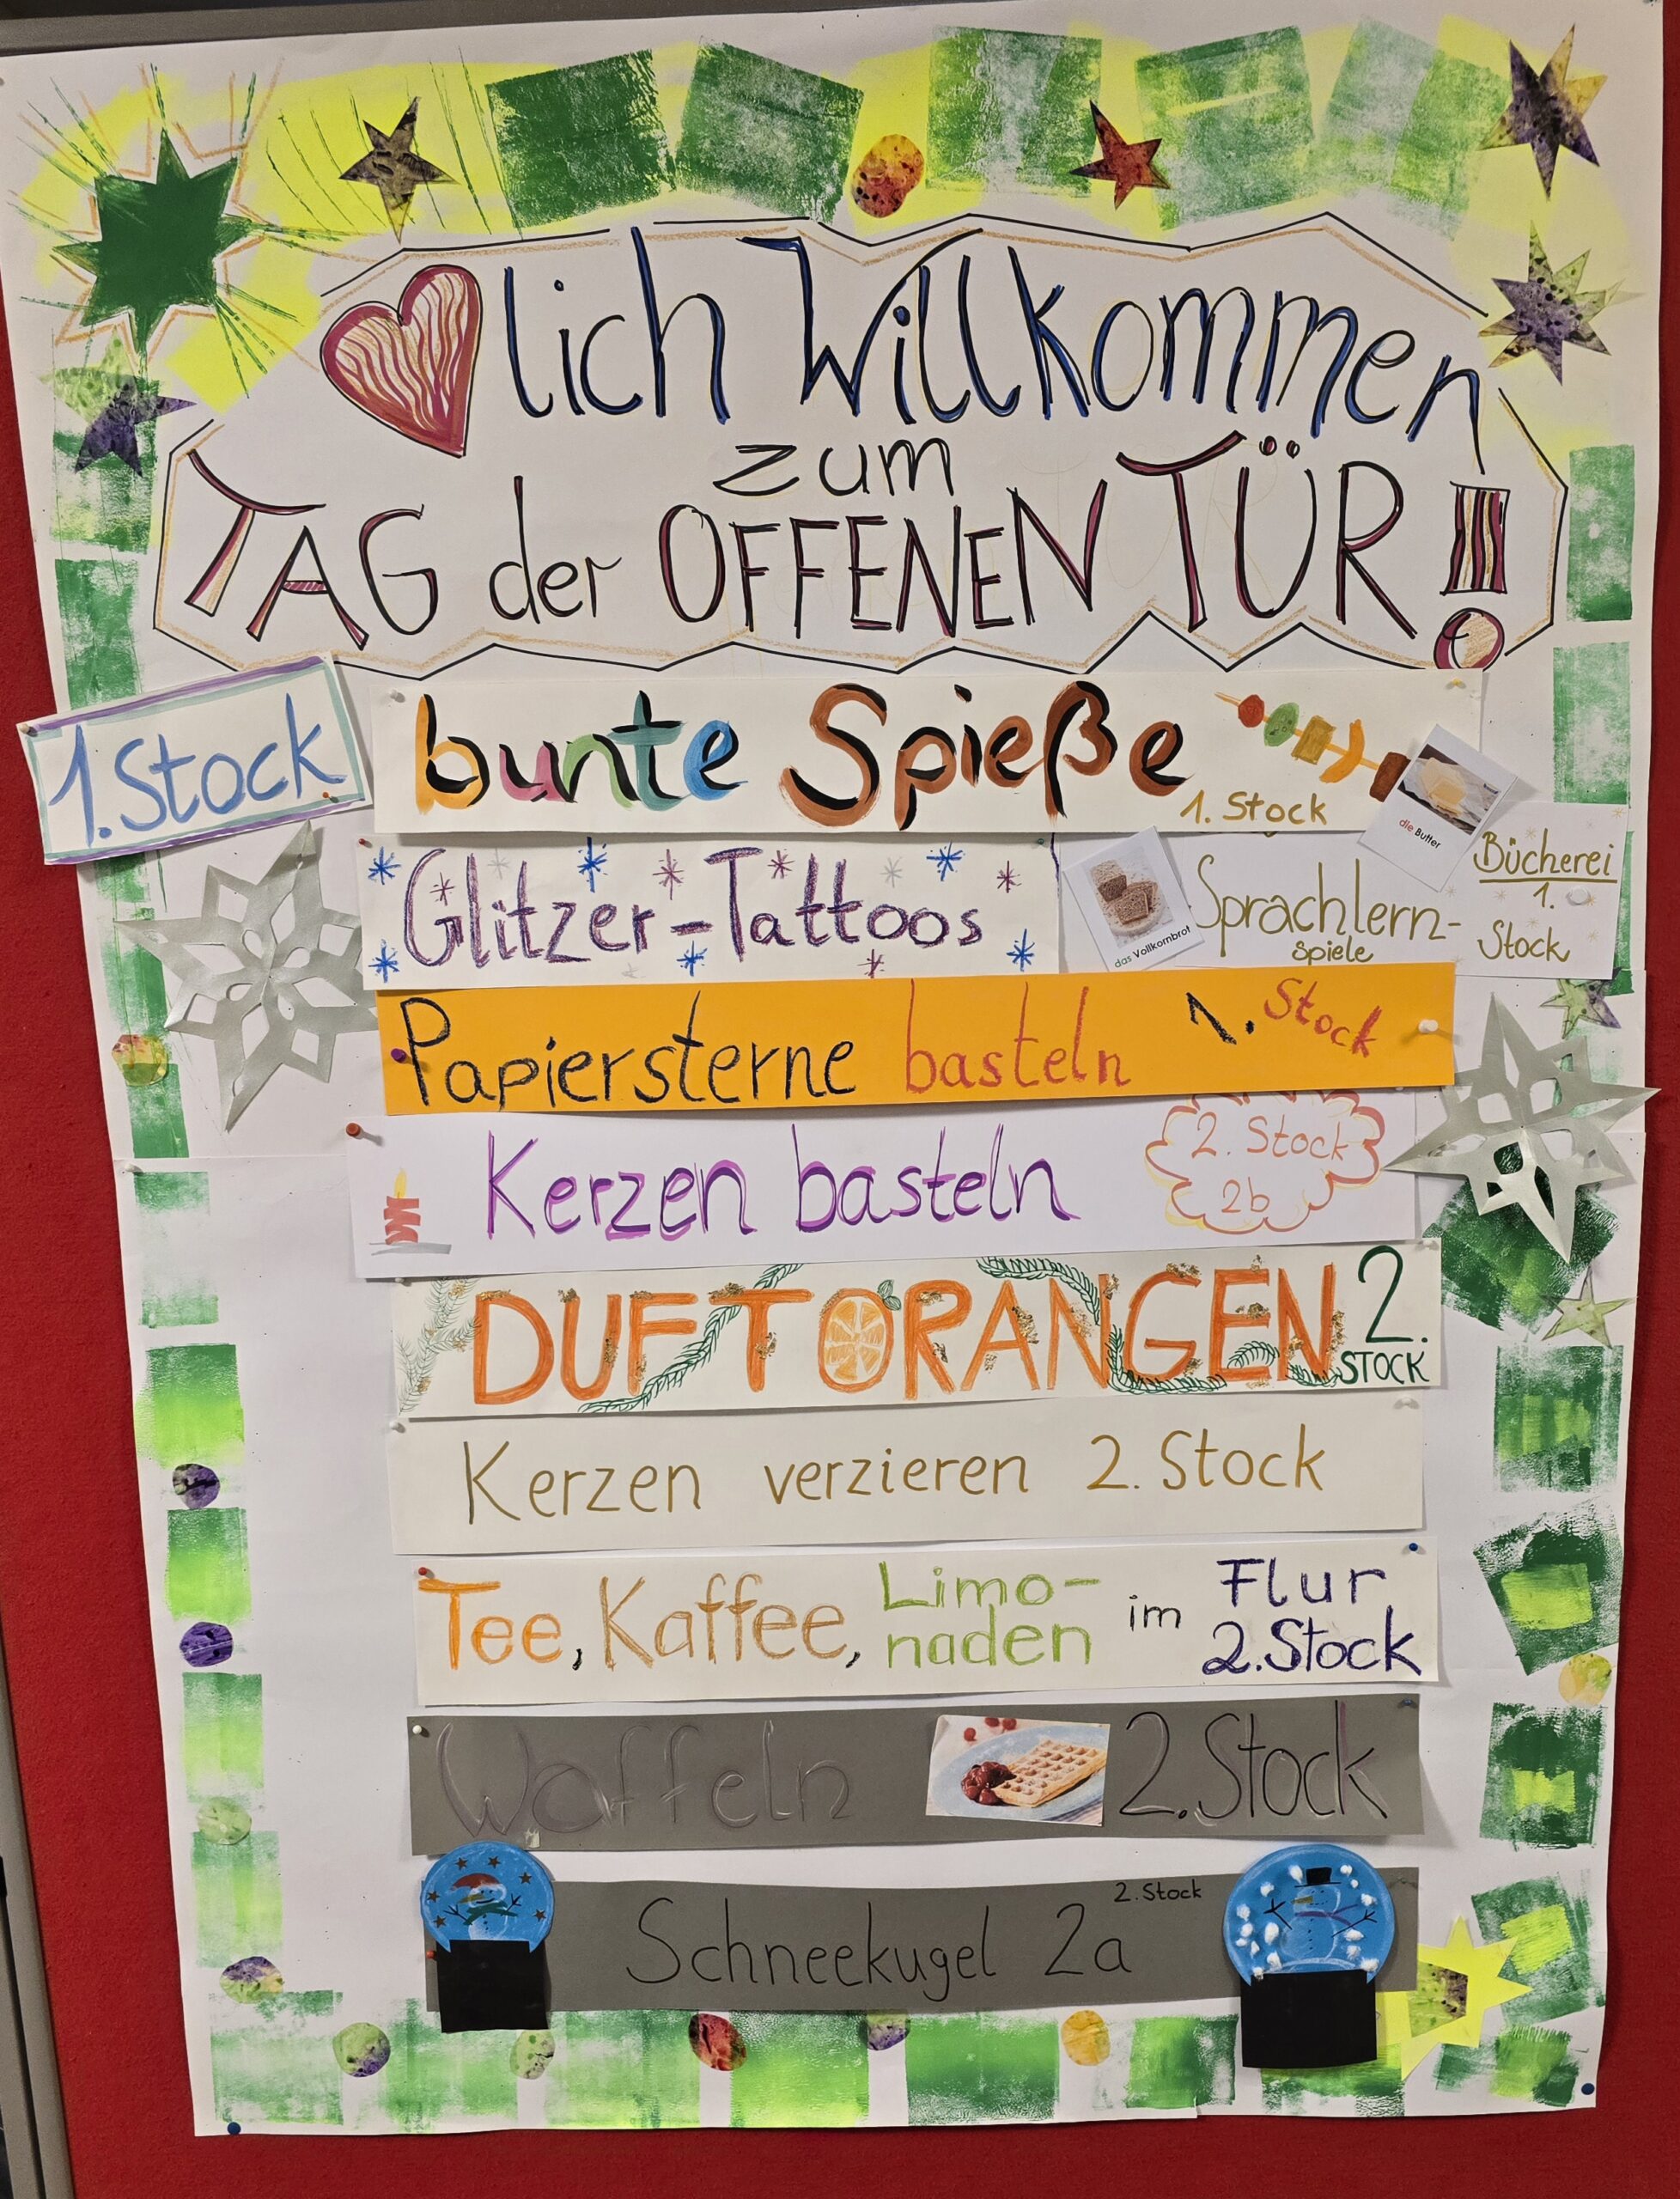 lich Willkommen
zum
TAG der OFFENEN TÜR!
1. Stock
bunte Spieße
1. Stock
die Butter
Glitzer-Tattoos
das Vollkornbrot
Sprachlern-
spiele
Bücherei
1.
Stock
Papiersterne basteln 1. Stock
Kerzen basteln
2. Stock
2b
DUFTORANGEN 2.
STOCK
Kerzen verzieren 2. Stock
Tee, Kaffee, Limo-
naden im Flur
2. Stock
Waffeln 2. Stock
Schneekugel 2a 2. Stock